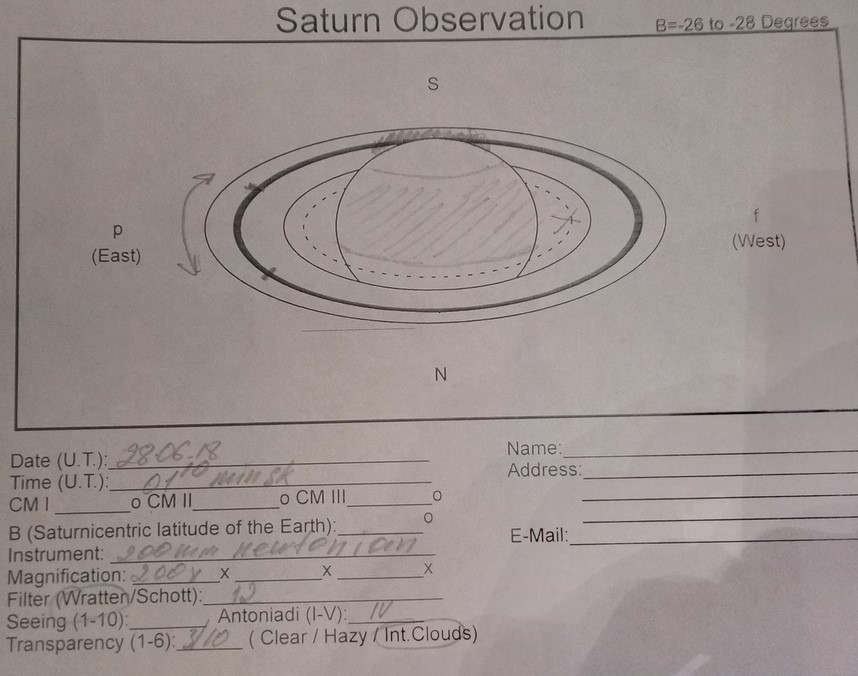 Saturn Observation
B=-26 to -28 Degrees
S
p
(East)
f
(West)
N
Date (U.T.): 28.06.18
Time (U.T.): 01 10 minsk
CM I o CM II o CM III o
B (Saturnicentric latitude of the Earth): o
Instrument: 200mm newtonian
Magnification: 200x x x x
Filter (Wratten/Schott): 12
Seeing (1-10): , Antoniadi (I-V): IV
Transparency (1-6): 3/10 ( Clear / Hazy / Int.Clouds)
Name:
Address:
E-Mail: